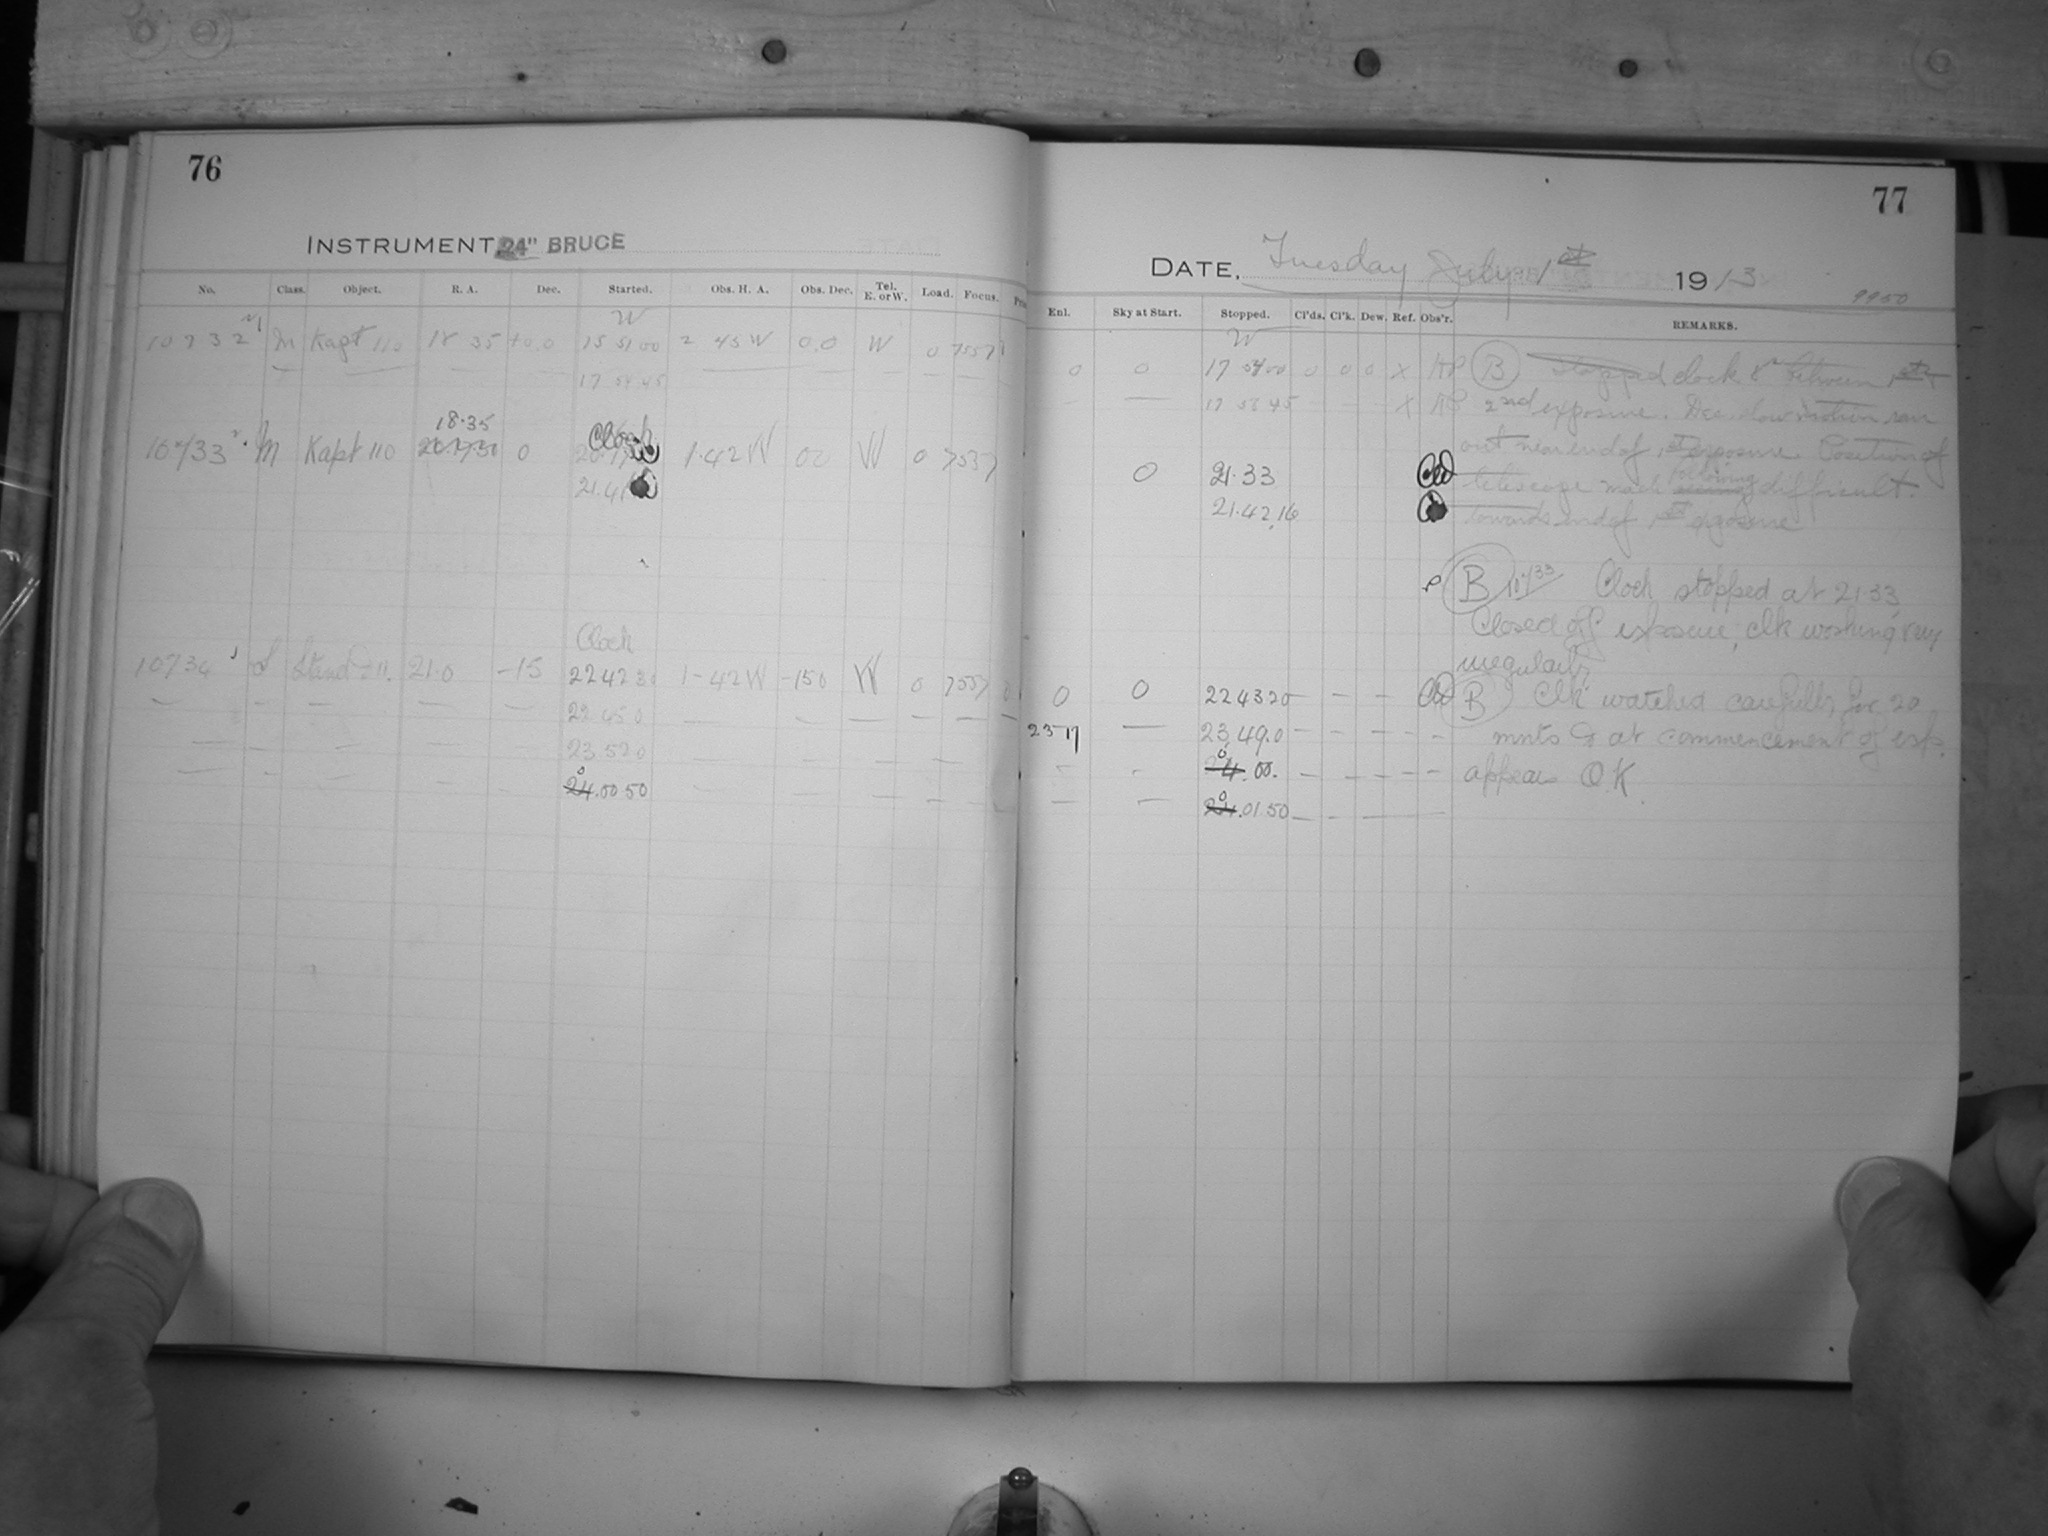 76
INSTRUMENT 24" BRUCE
No. Class. Object. R. A. Dec. Started. Obs. H. A. Obs. Dec. Tel. E. or W. Load. Focus.
W
10732 M Kapt 110 18 35 +0.0 15 51 00 2 45 W 0.0 W 0
17 54 45
18.35 Clock
M Kapt 110 0 1.42 W 00 W 0
21.41
Clock
10734 S Stand 21.0 -15 22 42 30 1-42 W -150 W 0
22.45 0
23.52 0
0
24.00 50
77
DATE, Tuesday July 1st 1913
9950
Enl. Sky at Start. Stopped. Cl'ds. Cl'k. Dew. Ref. Obs'r. REMARKS.
W
0 0 17 0 0 0 X B Stopped clock between 1st &
X 2nd exposure. Dec. slow motion ran
out near end of 1st exposure. Position of
0 21.33 telescope made following difficult.
21.42.16 towards end of 1st exposure
B Clock stopped at 21.33
Closed off exposure, clk working very
irregularly
0 0 22 43 20 — — — B Clk watched carefully for 20
23 17 — 23.49.0 — — — — — mnts & at commencement of exp.
0
24.00. — — — — — appears OK.
0
— — 24.01.50 — — —